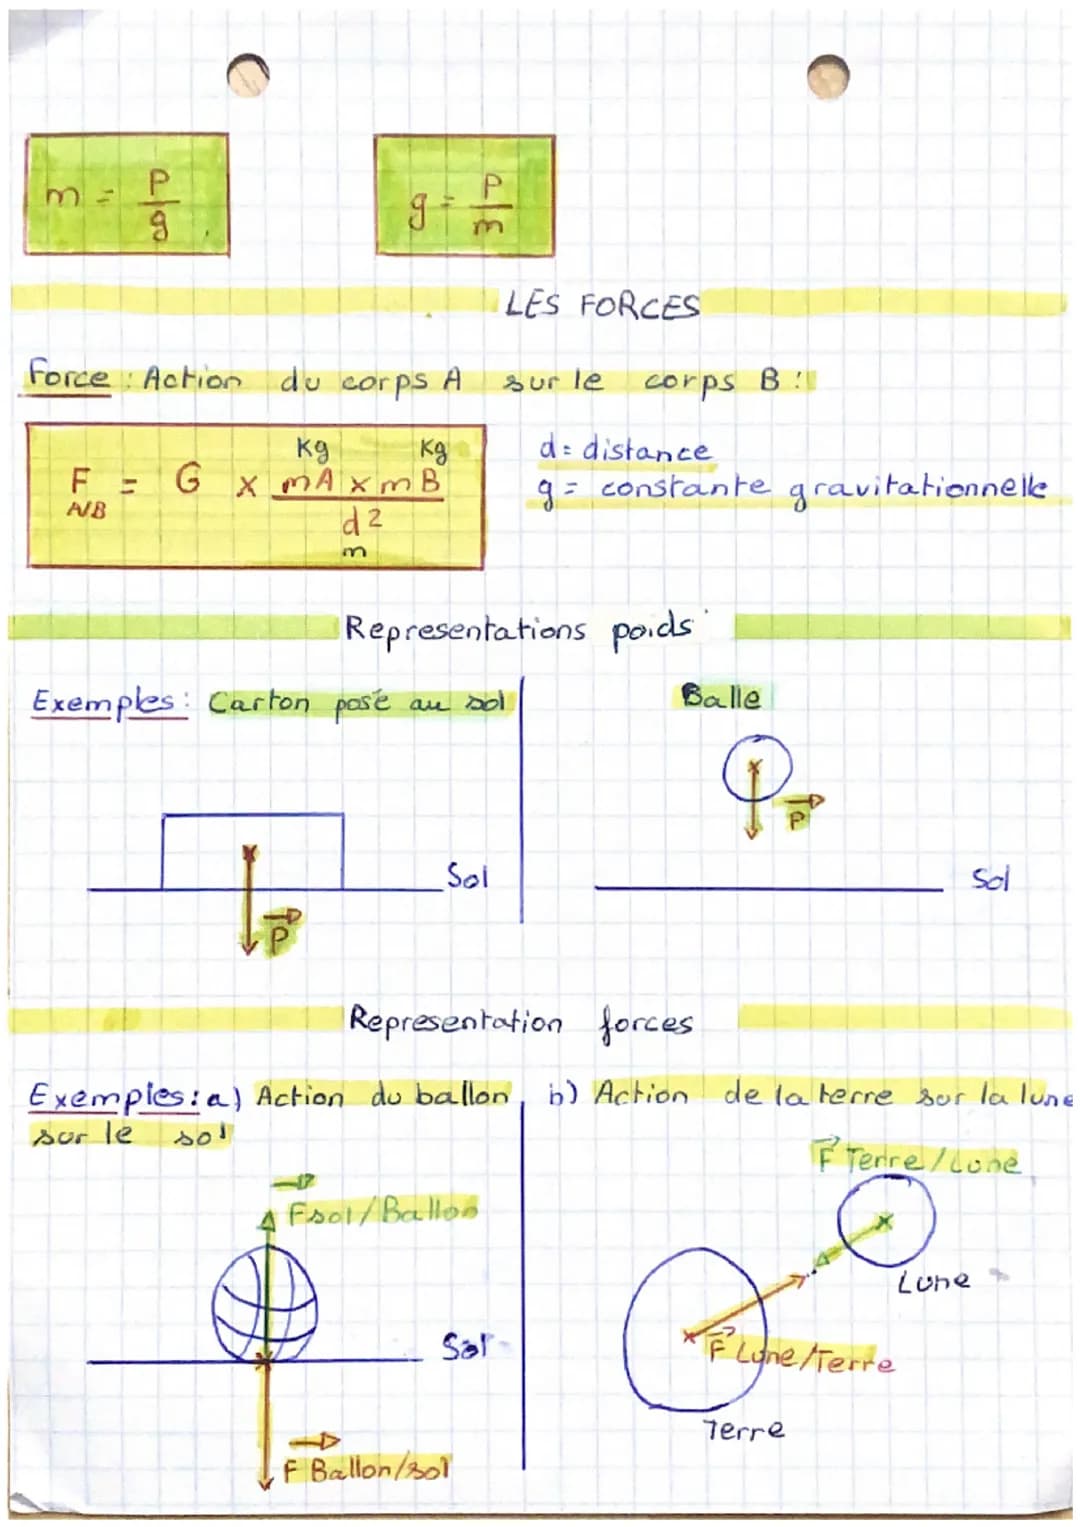 m = P/g
g = P/m
LES FORCES
Force : Action du corps A sur le corps B :
Kg Kg
F A/B = G x mA x mB / d²
m
d = distance
g = constante gravitationnelle
Representations poids
Exemples : Carton posé au sol
Balle
P
Sol
P
Sol
Representation forces
Exemples : a) Action du ballon
sur le sol
b) Action de la terre sur la lune
F Terre/Lune
F sol/Ballon
Lune
Sol
F Lune/Terre
Terre
F Ballon/sol